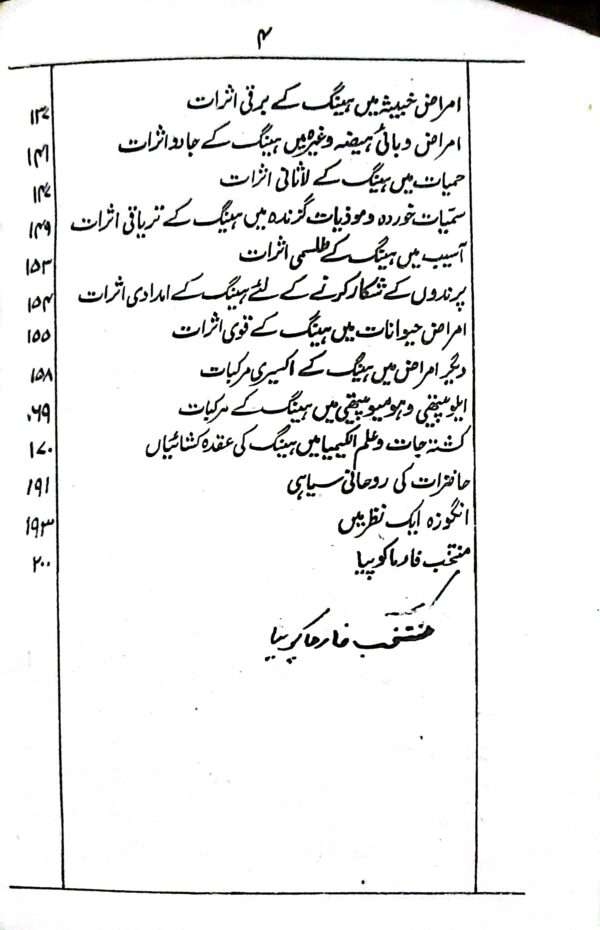 ۴
امراض خبیثہ میں ہینگ کے برقی اثرات ۱۳۷
امراض وبائی ہیضہ وغیرہ میں ہینگ کے جادو اثرات ۱۴۱
حمیات میں ہینگ کے لاثانی اثرات ۱۴۷
سمیّات خوردہ و موذیات گزندہ میں ہینگ کے تریاقی اثرات ۱۴۹
آسیب میں ہینگ کے طلسمی اثرات ۱۵۳
پرندوں کے شکار کرنے کے لئے ہینگ کے امدادی اثرات ۱۵۴
امراض حیوانات میں ہینگ کے قوی اثرات ۱۵۵
دیگر امراض میں ہینگ کے اکسیری مرکبات ۱۵۸
ایلوپیتھی و ہومیوپیتھی میں ہینگ کے مرکبات ۰۶۹
کشتہ جات و علم الکیمیا میں ہینگ کی عقدہ کشائیاں ۱۷۰
حاضرات کی روحانی سیاہی ۱۹۱
انگوزہ ایک نظر میں ۱۹۳
منتخب فارماکوپیا ۲۰۰
منتخب فارماکوپیا